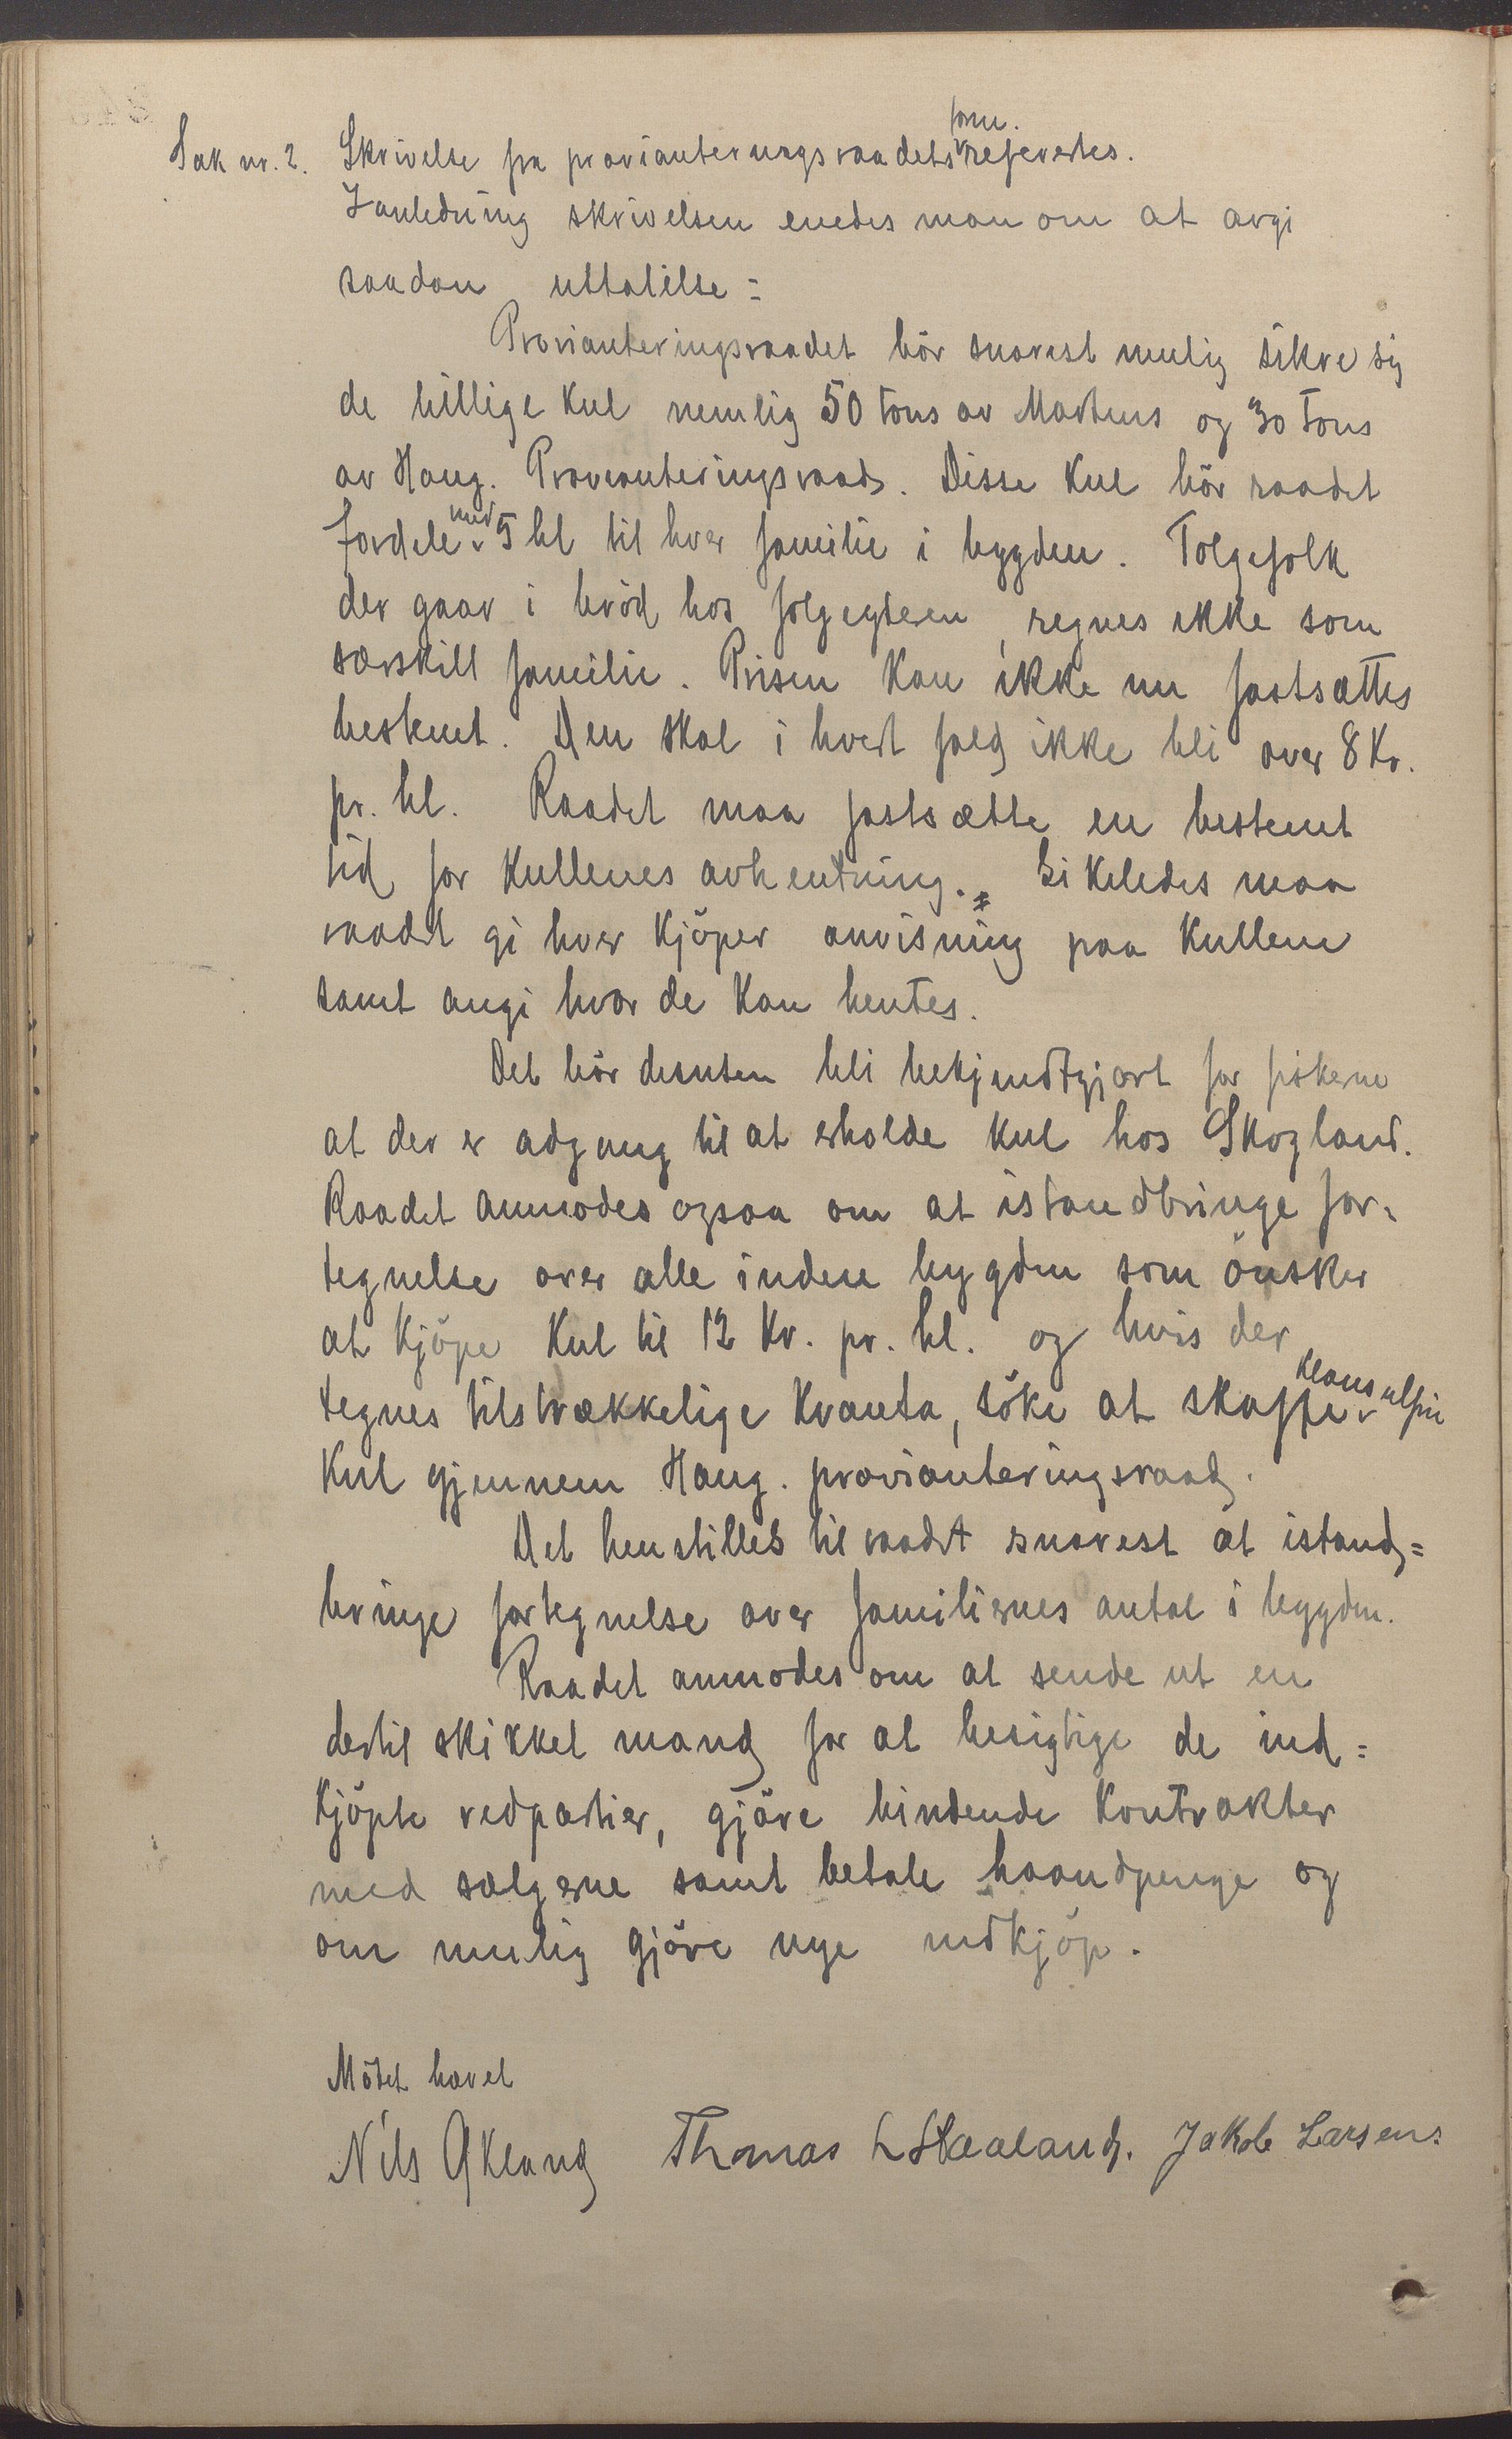 Sak nr. 2. Skrivelse fra provianteringsraadets form. refertes.
I anledning skrivelsen enedes man om at avgi
saadan uttalelse:
Provianteringsraadet bör snarest mulig sikre sig
de billige kul nemlig 50 tons av Martens og 30 tons
av Haug. Provianteringsraad. Disse kul bör raadet
fordele med 5 hl til hver familie i bygden. Folgefolk
der gaar i bröd hos folgeyteren, regnes ikke som
særskilt familie. Prisen kan ikke nu fastsættes
bestemt. Den skal i hvert fald ikke bli over 8 Kr.
pr. hl. Raadet maa fastsætte en bestemt
tid for kullenes avhentning. Likeledes maa
raadet gi hver kjöper anvisning paa kullene
samt angi hvor de kan hentes.
Det bör desuten bli bekjendtgjort for fiskerne
at der er adgang til at erholde kul hos Skogland.
Raadet anmodes ogsaa om at istandbringe for-
tegnelse over alle inden bygden som önsker
at kjöpe kul til 12 Kr. pr. hl. og hvis der
tegnes tilstrækkelige kvanta, söke at skaffe klausulfrie
kul gjennem Haug. provianteringsraad.
Det henstilles til raadet snarest at istand=
bringe fortegnelse over familiernes antal i bygden.
Raadet anmodes om at sende ut en
dertil skikket mand for at besigtige de ind=
kjöpte vedpartier, gjöre bindende kontrakter
med sælgerne samt betale haandpenge og
om mulig gjöre nye indkjöp.
Mödet hævet
Nils Økland Thomas L Staaland. Jakob Larsen.